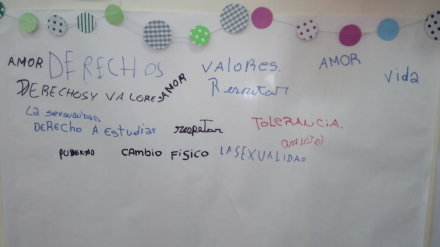 AMOR DERECHOS VALORES. AMOR
vida
DERECHOS Y VALORES AMOR Respetar
La sensualidad
DERECHO A Estudiar respetar TOLERANCIA.
amistad
PUBERTAD CAMBIO FISICO LA SEXUALIDAD